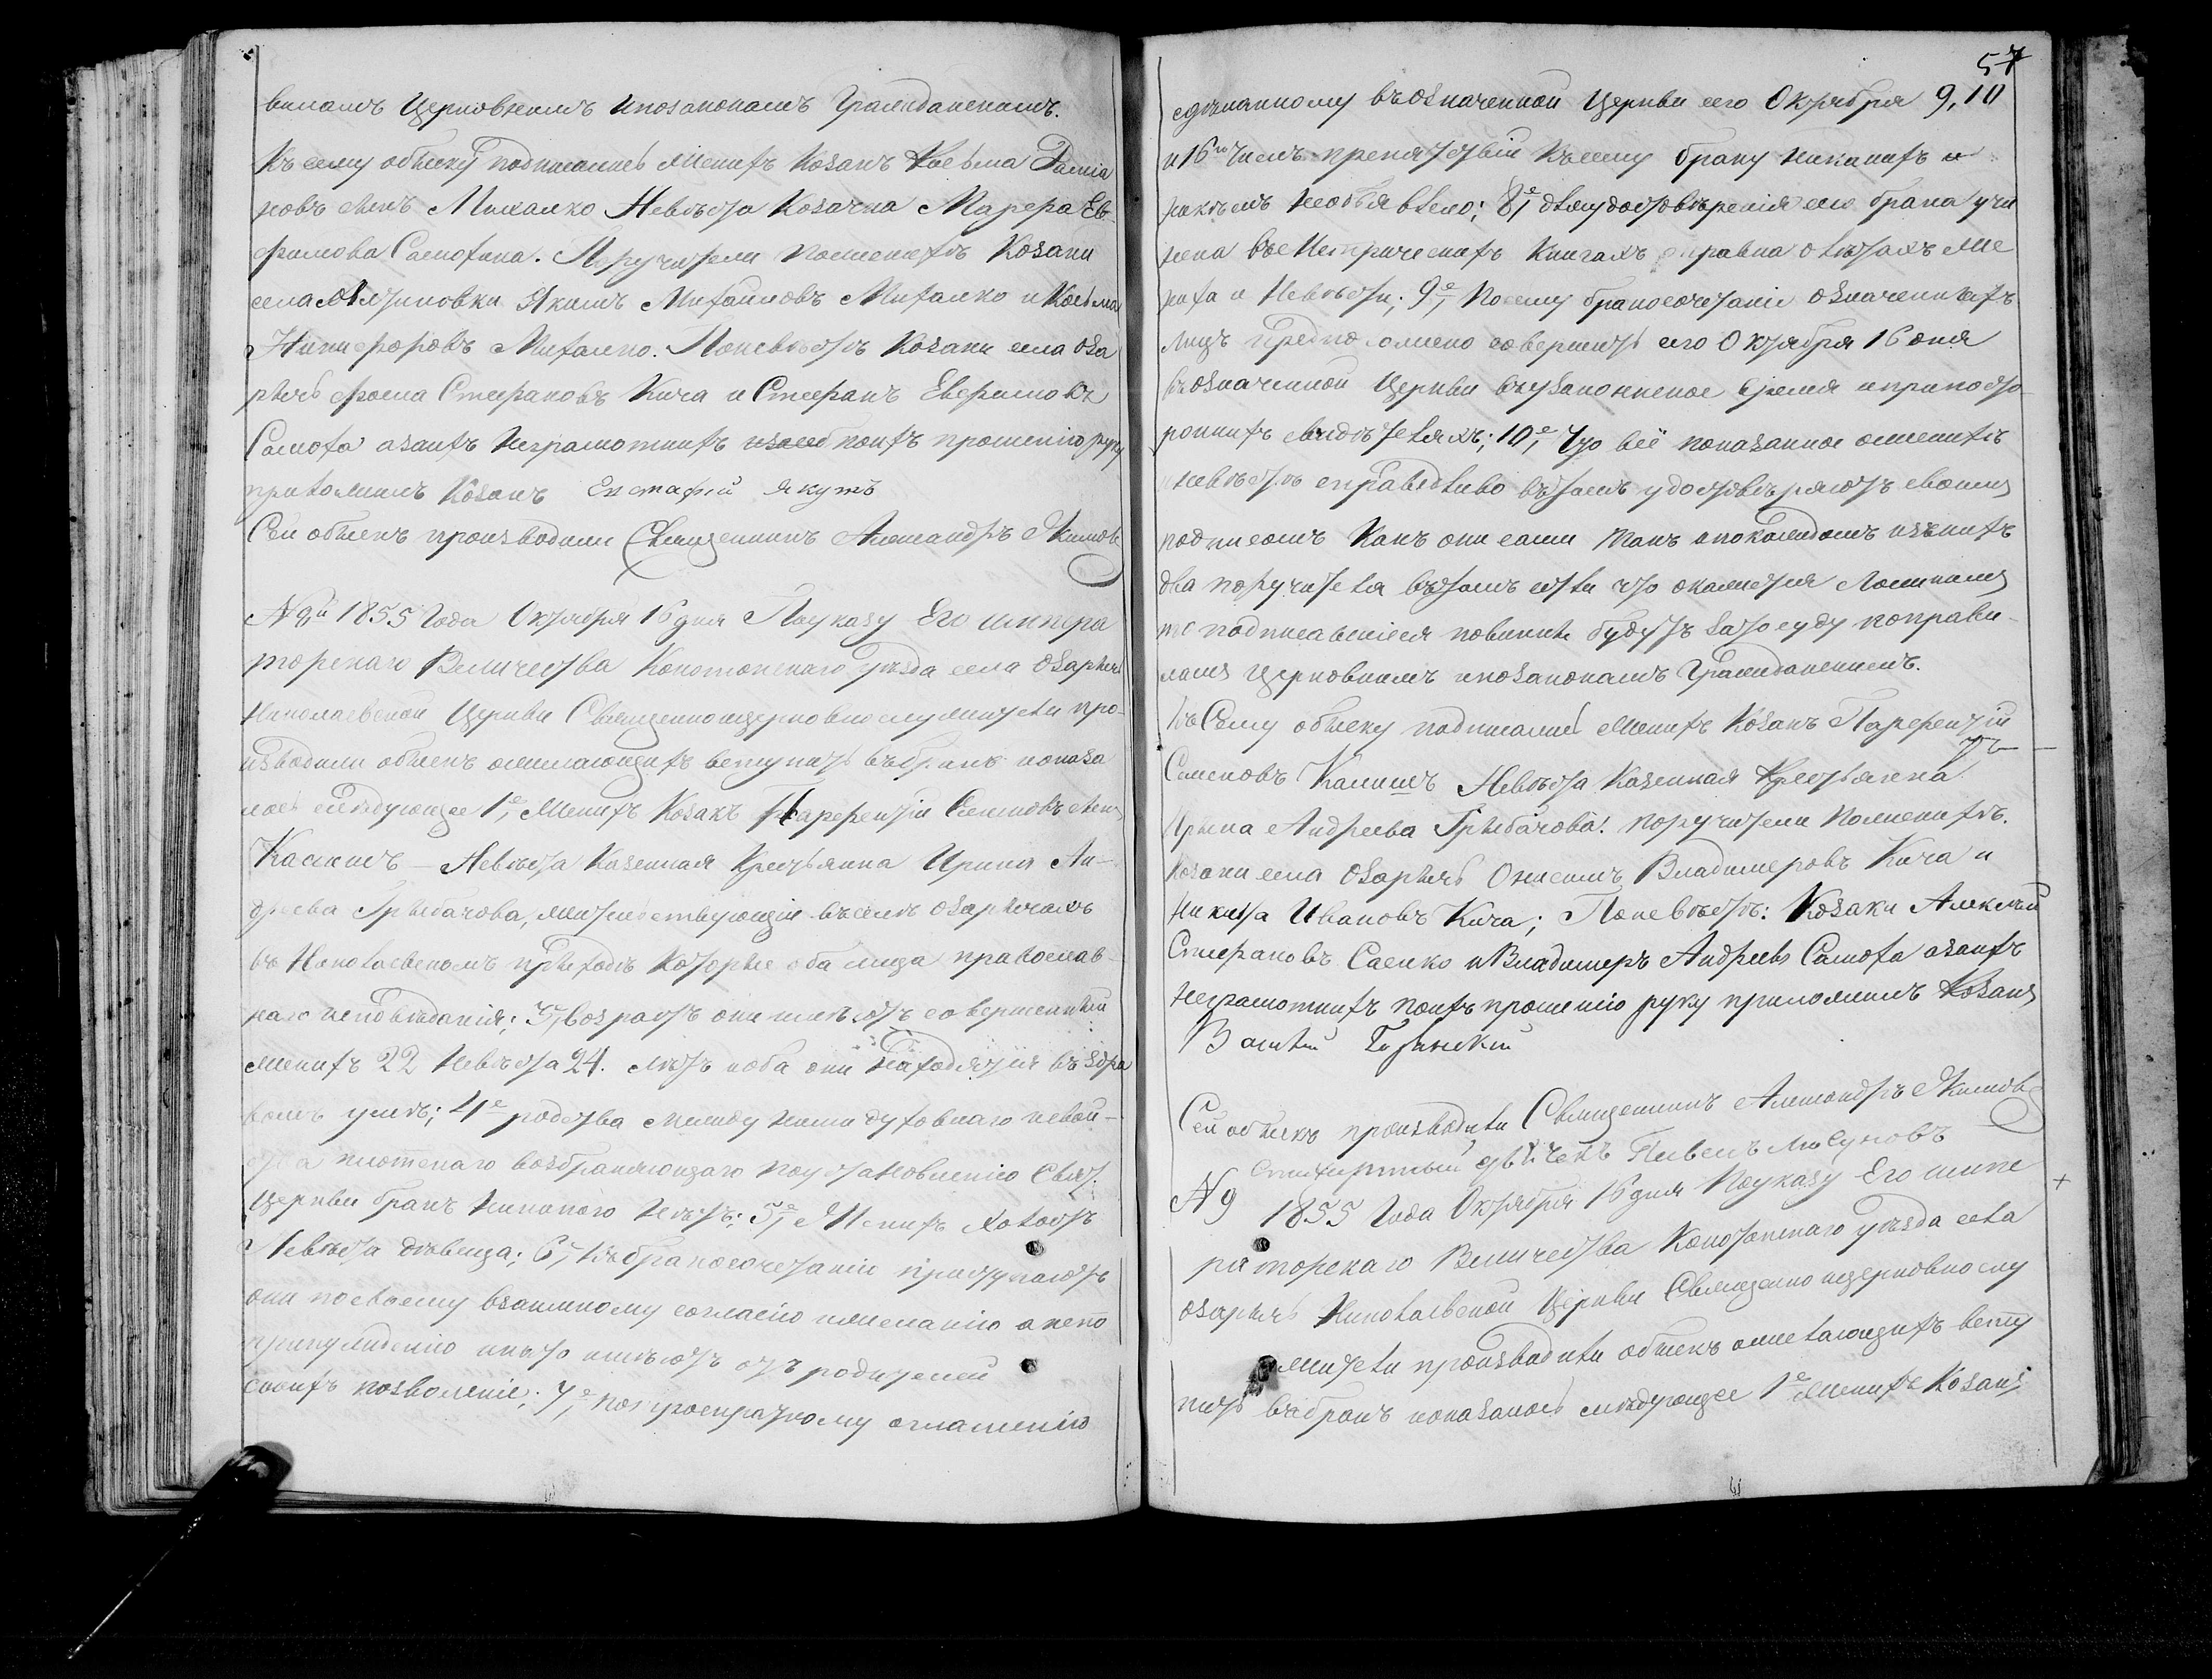 виламъ Церковнымъ и позаконамъ Гражданскимъ.
Къ сему обыску подписались Женихъ Козакъ Косьма
новъ сынъ Михалко Невѣста Козачка Марфа Ев-
фимова Самохина. Поручители По женихѣ Козаки
села Якимъ Михайловъ Михалко и Косьма
Никифоровъ Михалко. Поневѣстѣ Козаки села Оза
ричь Фома Стефановъ Кича и Стефанъ Евфимовъ
Самоха а заихъ неграмотныхъ поихъ прошенію руку
приложилъ Козакъ Евстафий Якутъ
Сей обыскъ производили Священникъ Александръ Якимовъ
№ 8й 1855 Года Октября 16 дня По указу Его Импера
торскаго Величества Конотопскаго уѣзда села Озаричь
Николаевской Церкви Священноицерковнослужители про-
изводили обыскъ ожелающихъ вступить въбракъ и оказа
лось слѣдующее 1е, Женихъ Козакъ Парфентій Семеновъ сынъ
Калишъ – Невѣста Казенная Крестьянка Ирина Ан-
дреева Грибачова, жительствующіе въселѣ Озаричахъ
въ Николаевскомъ приходѣ Которые оба лица православ-
наго исповѣданія; 3е, Возрастъ они имѣютъ совершенный
Женихъ 22 Невѣста 24. лѣтъ иоба они находятся въ здра
вомъ умѣ; 4е родства между ними духовнаго исвой-
ства плотскаго возбраняющаго поустановленію Свят.
Церкви бракъ никакого нѣтъ; 5е, Женихъ Холостъ
Невѣста дѣвица; 6е, Къбракосочетанію приступаютъ
они посвоему взаимному согласію ижеланію анепо
принужденію инато имѣютъ отъ родителей
своихъ позволеніе; 7е, потроекратному оглашенію
57
сдѣланному въозначенной Церкви сего Октября 9, 10
и 16го числъ препятствій къ сему браку никакихъ и
никѣмъ необъявлено; 8е, дляудостовѣренія сего брака учи
нена въ Метрическихъ Книгахъ справка олѣтахъ же
ниха и Невѣсты; 9е, Посему бракосочетаніе означенныхъ
лицъ предположено совершить сего Октября 16 дня
въозначенной Церкви въузаконенное время иприпосто-
роннихъ свидѣтеляхъ; 10е, Что всё показанное оженихѣ
иневѣстѣ справедливо въчемъ удостовѣряютъ своимъ
подписомъ Какъ они сами такъ апокаждомъ изънихъ
два поручителя вътомъ если что окажется Ложнымъ
то подписавшіеся повинни будутъ зато суду поправи-
ламъ Церковнымъ ипозаконамъ Гражданскимъ.
Къ Сему обыску подписались Женихъ Козакъ Парфентій
Семеновъ Калишъ Невѣста Казенная Крестьянка
Ирина Андреева Грибачова. Поручители Поженихѣ.
Козаки села Озаричь Онисимъ Владимеровъ Кича и
Никита Ивановъ Кича; Поневѣстѣ: Козаки Алексѣй
Стефановъ Саенко и Владимеръ Андреевъ Самоха азаихъ
неграмотныхъ поихъ прошенію руку приложилъ Козакъ
Василий
Сей обыскъ производили Священникъ Александръ Якимовъ
дьячекъ
№ 9 1855 Года Октября 16 дня Поуказу Его Импе
раторскаго Величества Конотопскаго уѣзда села
Озаричь Николаевской Церкви Священноицерковнослу
жители производили обыскъ ожелающихъ всту
пить въбракъ иоказалось слѣдующее 1е Женихъ Козакъ